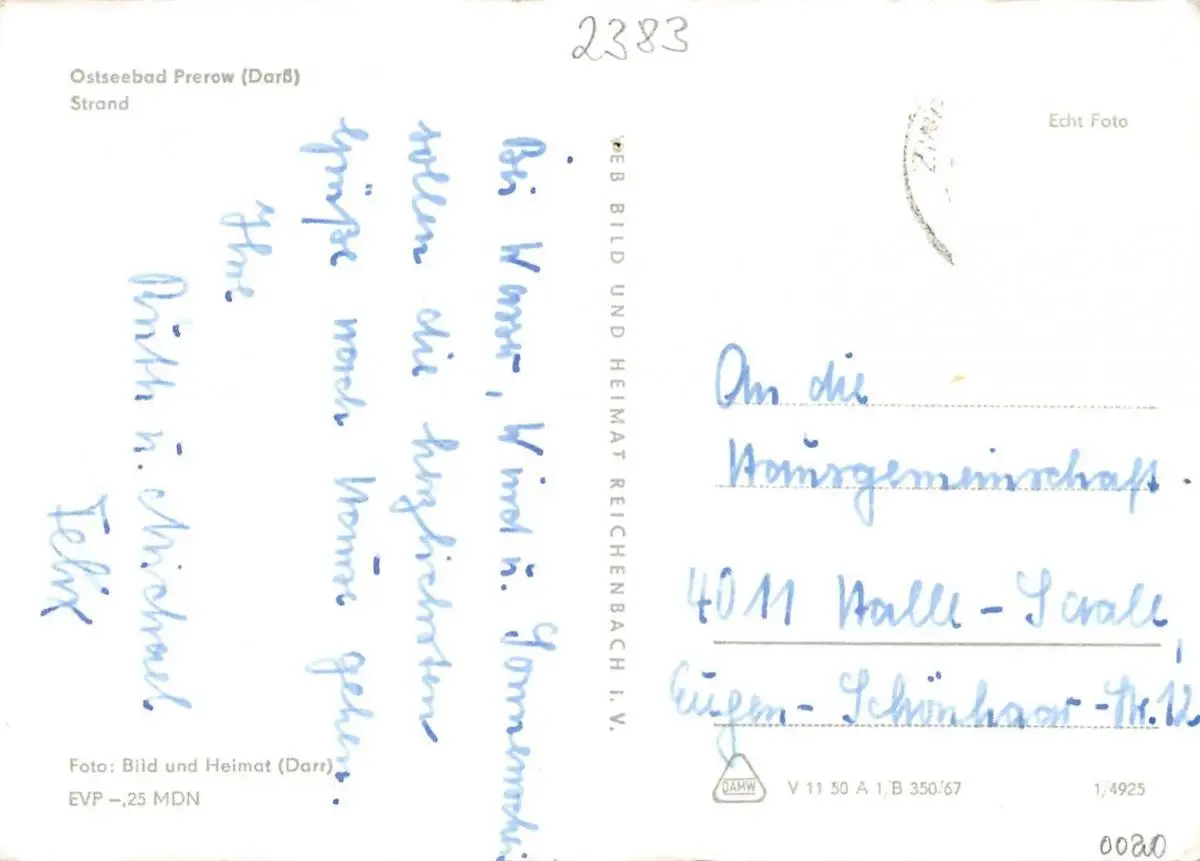 2383
Ostseebad Prerow (Darß)
Strand
Echt Foto
Bei Wasser, Wind u. Sonnenschei
sollen die herzlichsten
Grüße nach Hause gehen.
Ihre
Ruth u. Michael
Felix
VEB BILD UND HEIMAT REICHENBACH I. V.
An die
Hausgemeinschaft.
4011 Halle - Saale,
Eugen - Schönhaar - Str. 12
Foto: Bild und Heimat (Darr)
EVP -,25 MDN
DAMW
V 11 50 A 1/B 350/67
1/4925
0020